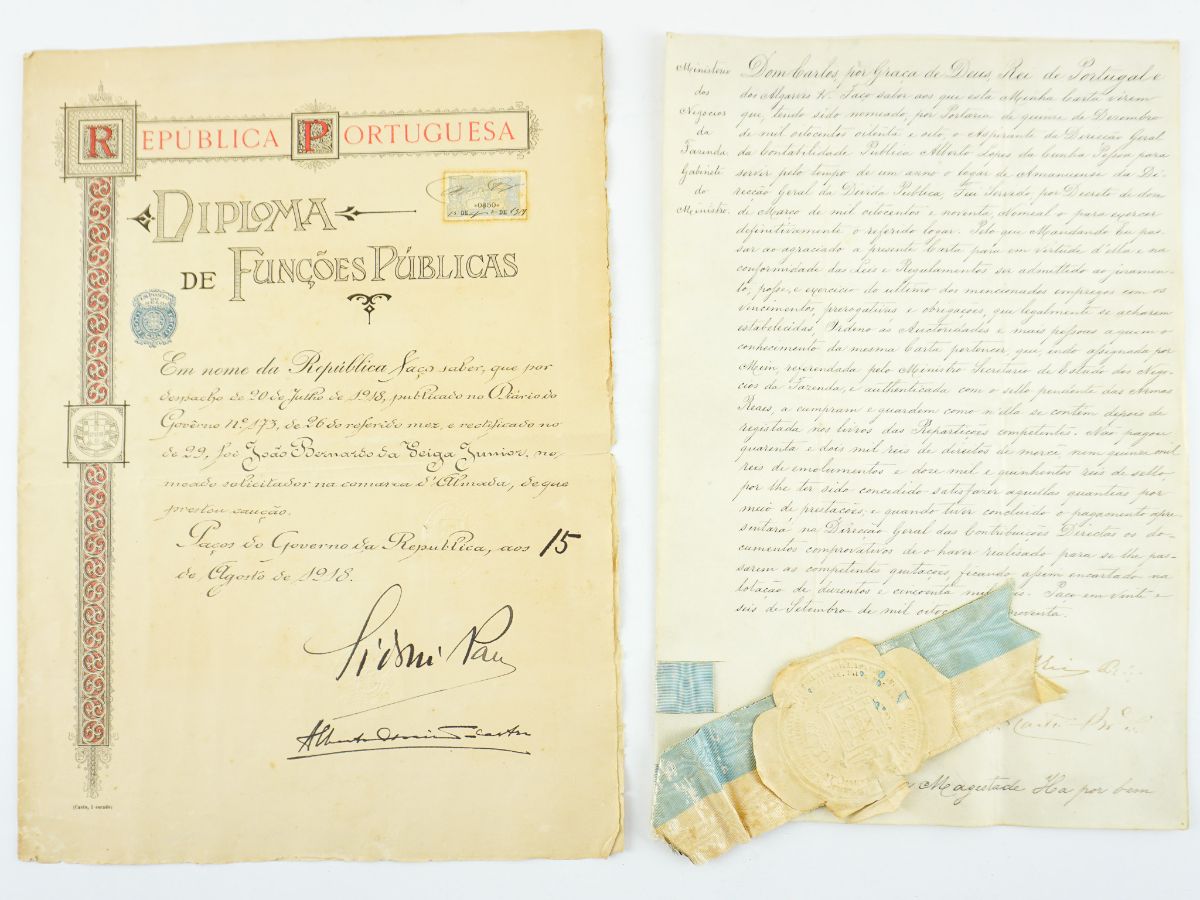 REPÚBLICA PORTUGUESA
DIPLOMA
DE FUNÇÕES PÚBLICAS
Em nome da República faço saber, que por
despacho de 20 de Julho de 1918, publicado no Diário do
Govêrno nº 173, de 26 do referido mez, e rectificado no
de 29, foi João Bernardo da Veiga Junior, no-
meado solicitador na comarca d'Almada, de que
prestou caução.
Paços do Governo da Republica, aos 15
de Agosto de 1918.
(Custo, 1 escudo)
Ministerio
dos
Negocios
da
Fazenda
Gabinete
do
Ministro.
Dom Carlos, por Graça de Deus, Rei de Portugal e
dos Algarves &ª. Faço saber aos que esta Minha Carta virem
que, tendo sido nomeado, por Portaria de quinze de Dezembro
de mil oitocentos oitenta e oito, o Aspirante da Direcção Geral
da Contabilidade Publica Alberto Lopes da Cunha Pessoa para
servir pelo tempo de um anno o logar de Amanuense da Di-
recção Geral da Divida Publica, Fui Servido, por Decreto de
de Março de mil oitocentos e noventa, Nomeal o para exercer
definitivamente o referido logar. Pelo que Mandando Eu pas-
sar ao agraciado a presente Carta para em virtude d'ella e na
conformidade das Leis e Regulamentos ser admittido ao juramen-
to, posse, e exercicio do ultimo dos mencionados empregos com os
vencimentos, prerogativas e obrigações, que legalmente se acharem
estabelecidas, Ordeno ás Auctoridades e mais pessoas a quem o
conhecimento da mesma Carta pertencer, que, indo assignada por
Mim, referendada pelo Ministro Secretario de Estado dos Nego-
cios da Fazenda, e authenticada com o sello pendente das Armas
Reaes, a cumpram e guardem como n'ella se contem depois de
registada nos livros das Repartições competentes. Não pagou
quarenta e dois mil reis de direitos de mercê nem quinze mil
reis de emolumentos e doze mil e quinhentos reis de sello,
por lhe ter sido concedido satisfazer aquellas quantias por
meio de prestações, e quando tiver concluido o pagamento apre-
sentará na Direcção Geral das Contribuições Directas os do-
cumentos comprovativos de o haver realisado para se lhe pas-
sarem as competentes quitações, ficando assim encartado na
lotação de duzentos e cincoenta mil. Paço em vinte e
seis de Setembro de mil noventa.
Magestade Ha por bem